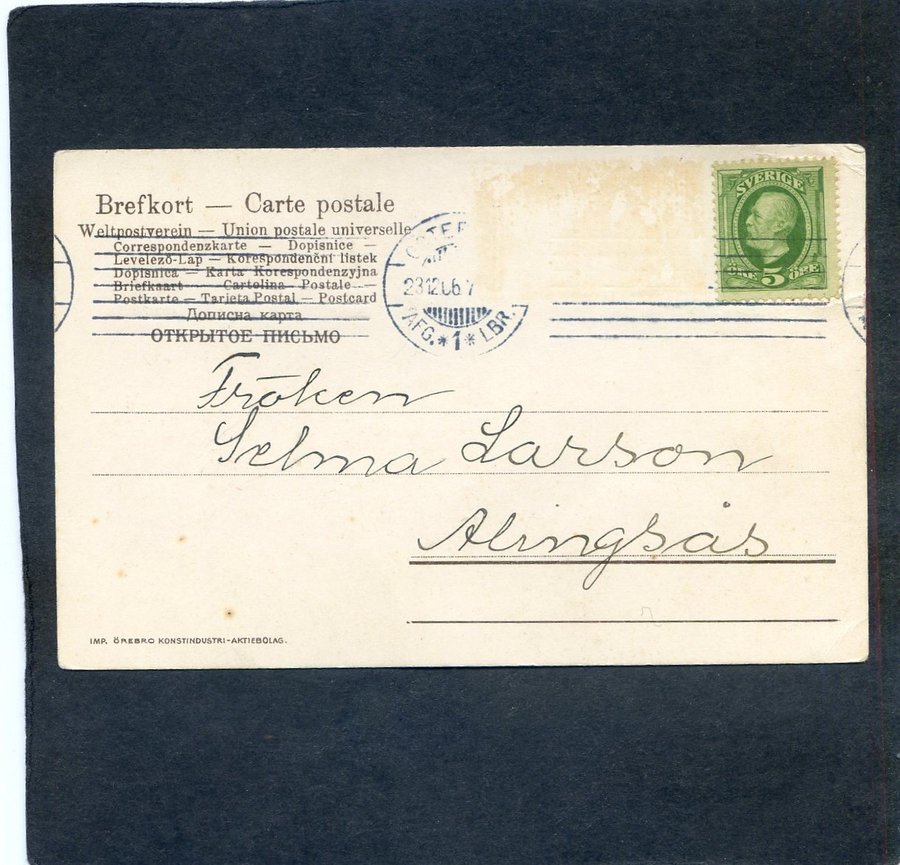 Brefkort — Carte postale
Weltpostverein — Union postale universelle
Correspondenzkarte — Dopisnice —
Levelező-Lap — Korespondenční lístek
Dopisnica — Karta Korespondenzyjna
Briefkaart — Cartolina Postale —
Postkarte — Tarjeta Postal — Postcard
Дописна карта
ОТКРЫТОЕ ПИСЬМО
23 12 06 7
AFG. * 1 * LBR.
SVERIGE
ÖRE 5 ÖRE
Fröken
Selma Larson
Alingsås
IMP. ÖREBRO KONSTINDUSTRI-AKTIEBOLAG.